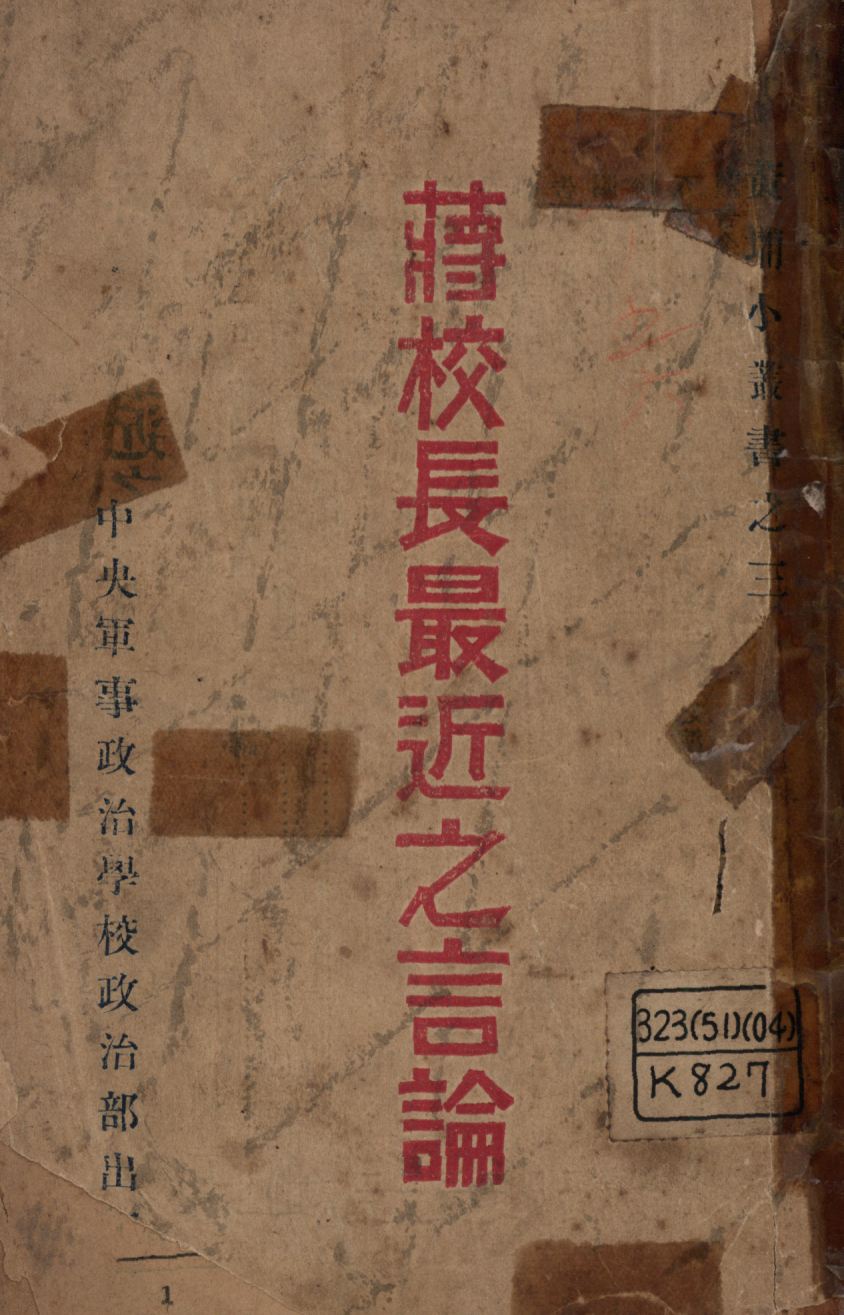 黃埔小叢書之三
蔣校長最近之言論
中央軍事政治學校政治部出
323(51)(04)
K827
1